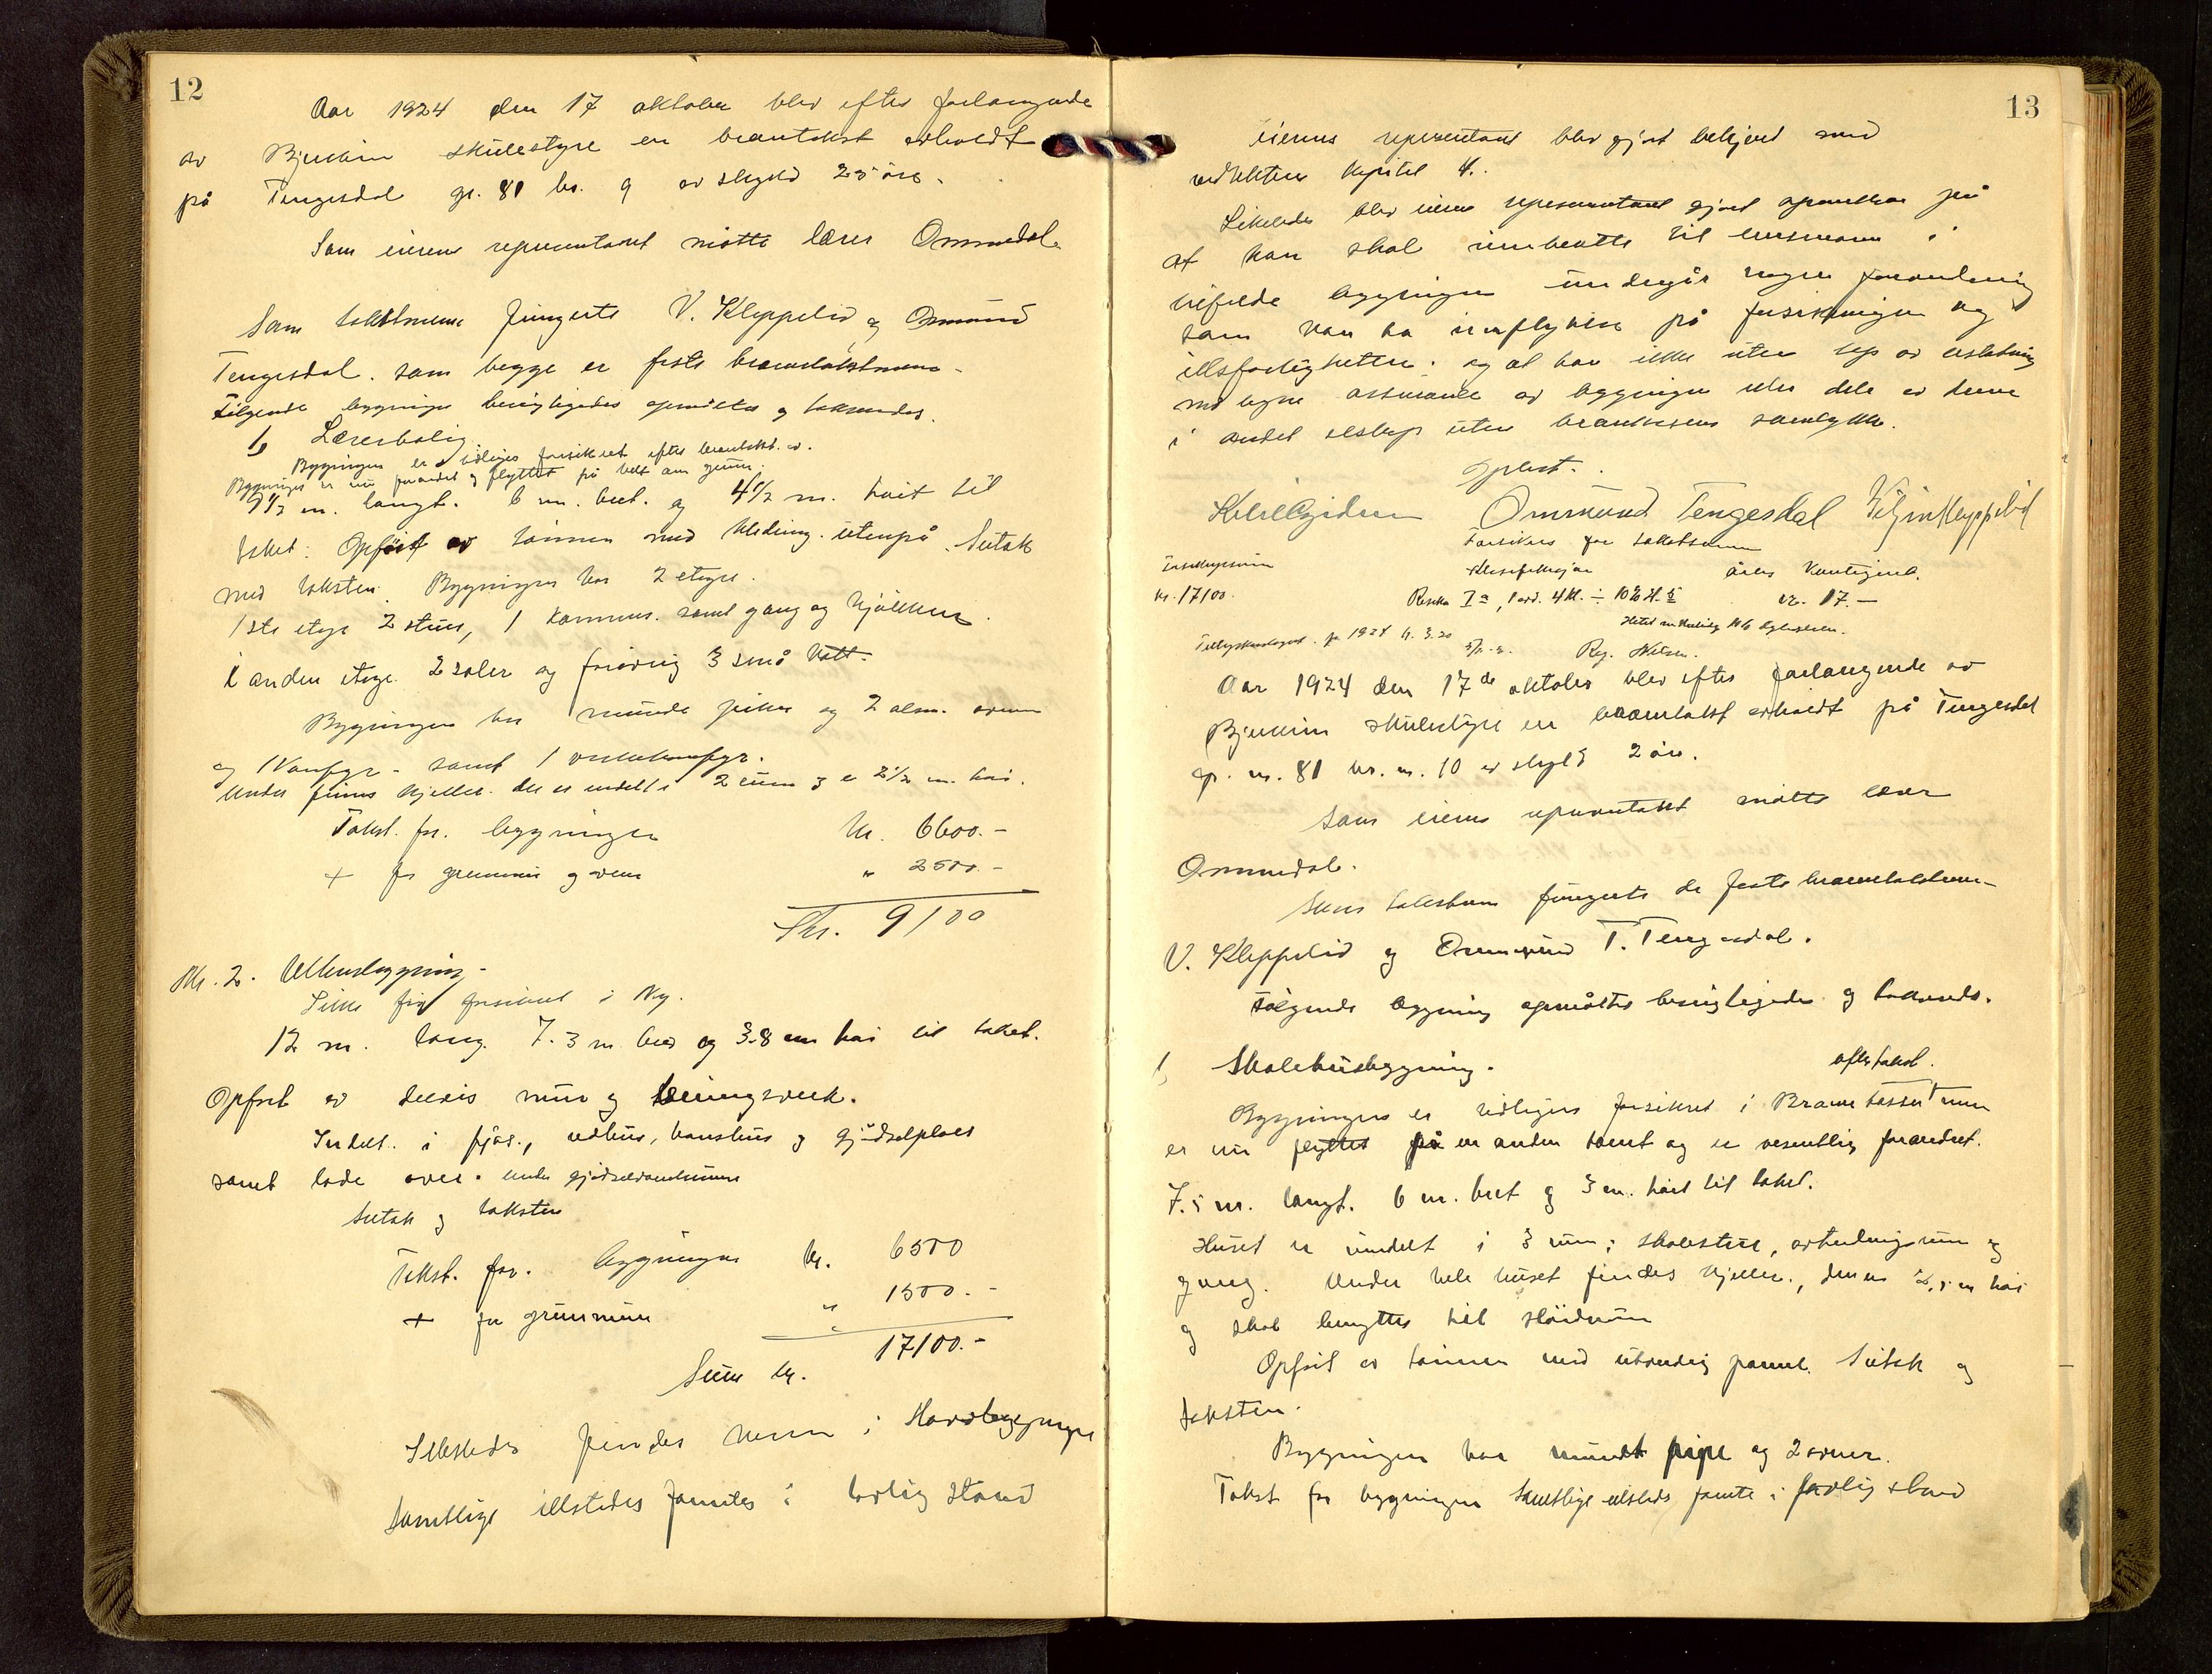 12
Aar 1924 den 17 oktober blev efter forlangende
av Bjerkrim skulestyre en brantakst avholdt
på Tengesdal gr. 81 br. 9 av skyld 25 øre.
Som eierens representant møtte lærer Ommedal.
Som takstmenn fungerte V. Kleppelid og Ommund
Tengesdal. som begge er faste branntakstmenn.
Følgende bygninger besigtigedes opmåltes og taksertes.
1, Lærerbolig.
Bygningen er tidligere forsikret efter brantakst. av.
Bygningen er nu forandret og flyttet på helt anr grunn.
9 1/2 m. langt. 6 m. bret. og 4 1/2 m. høit til
taket. Opført av tømmer med kledning utenpå. Sutak
med taksten. Bygningen har 2 etager.
1ste etage 2 stuer, 1 kammer. samt gang og kjøkken.
I anden etage. 2 saler og forøvrig 3 små kott.
Bygningen har murede piker og 2 alm. ovner
og 1 komfyr. samt 1
Under finnes kjeller. der er indelt i 2 rum og er 2 1/2 m. høi.
Takst. for. bygningen kr. 6600.-
+ for grunnmur og ovne " 2500.-
Kr. 9100
Nr. 2. Uthusbygning.
Ikke før forsikret i Ny.
12 m. lang. 7.3 m bred og 3.8 m høi til taket.
Opført av delvis mur og bindingsverk.
Indelt. i fjøs, vedhus, hønshus og gjødselplads
samt lade over. under gjødselrummene
Sutak og taksten
Takst. for. bygningen kr. 6500
+ for grunnmur " 1500.-
Sum kr. 17100.-
Ildsteder findes kunn i Hovedbygningen
Samtlige illsteder fantes i lovlig stand
13
eierens representant blev gjort bekjent med
vedtekternes kapitel 4.
Likeledes blev eierens representant gjort opmerksom på
at han skal innberette til lensmann i
tilfelde bygningen undergår nogen forandring
som kan ha innflytelse på forsikringen og
ildsfarligheten. og at han ikke uten tap av erstatning
må tegne assurance av bygningen eller dele av denne
i andet selskap uten brannkassens samtykke.
Oplest.
Ommund Tengesdal Viljen Kleppelid
Forsikres for takstsummen
Forsikringssum Klassifikasjon årlig Kontigent.
kr. 17100. Risiko I a, 1 avd. 4 kl. ÷ 10% kr. 17.-
Tilleggskontingent for 1924 kr. 3.20
Reg. Nilsen.
Aar 1924 den 17de oktober blev efter forlangende av
Bjerkrim skulestyre en branntakst avholdt på Tengesdal
gr. nr. 81 br. nr. 10 av skyld 2 øre.
Som eierens representant møtte lærer
Ommedal.
Som takstmenn fungerte de faste branntakstmenn
V. Kleppelid og Ommund T. Tengesdal.
Følgende bygning opmåltes besigtigedes og taksertes.
1, Skolehusbygning. efter takst.
Bygningen er tidligere forsikret i Brannkassen men
er nu flyttet på en anden tomt og er vesentlig forandret.
7.5 m. langt. 6 m. bret og 3 m. høit til taket.
Huset er inndelt i 3 rum; skolestue, avdelingsrum og
gang. Under hele huset findes kjeller, den er 2,5 m høi
og skal benyttes til sløidrum
Opført av tømmer med utvendig pannel. Sutak og
taksten.
Bygningen har muret pipe og 2 ovner.
Takst for bygningen Samtlige ildsteds fantes i farlig stand